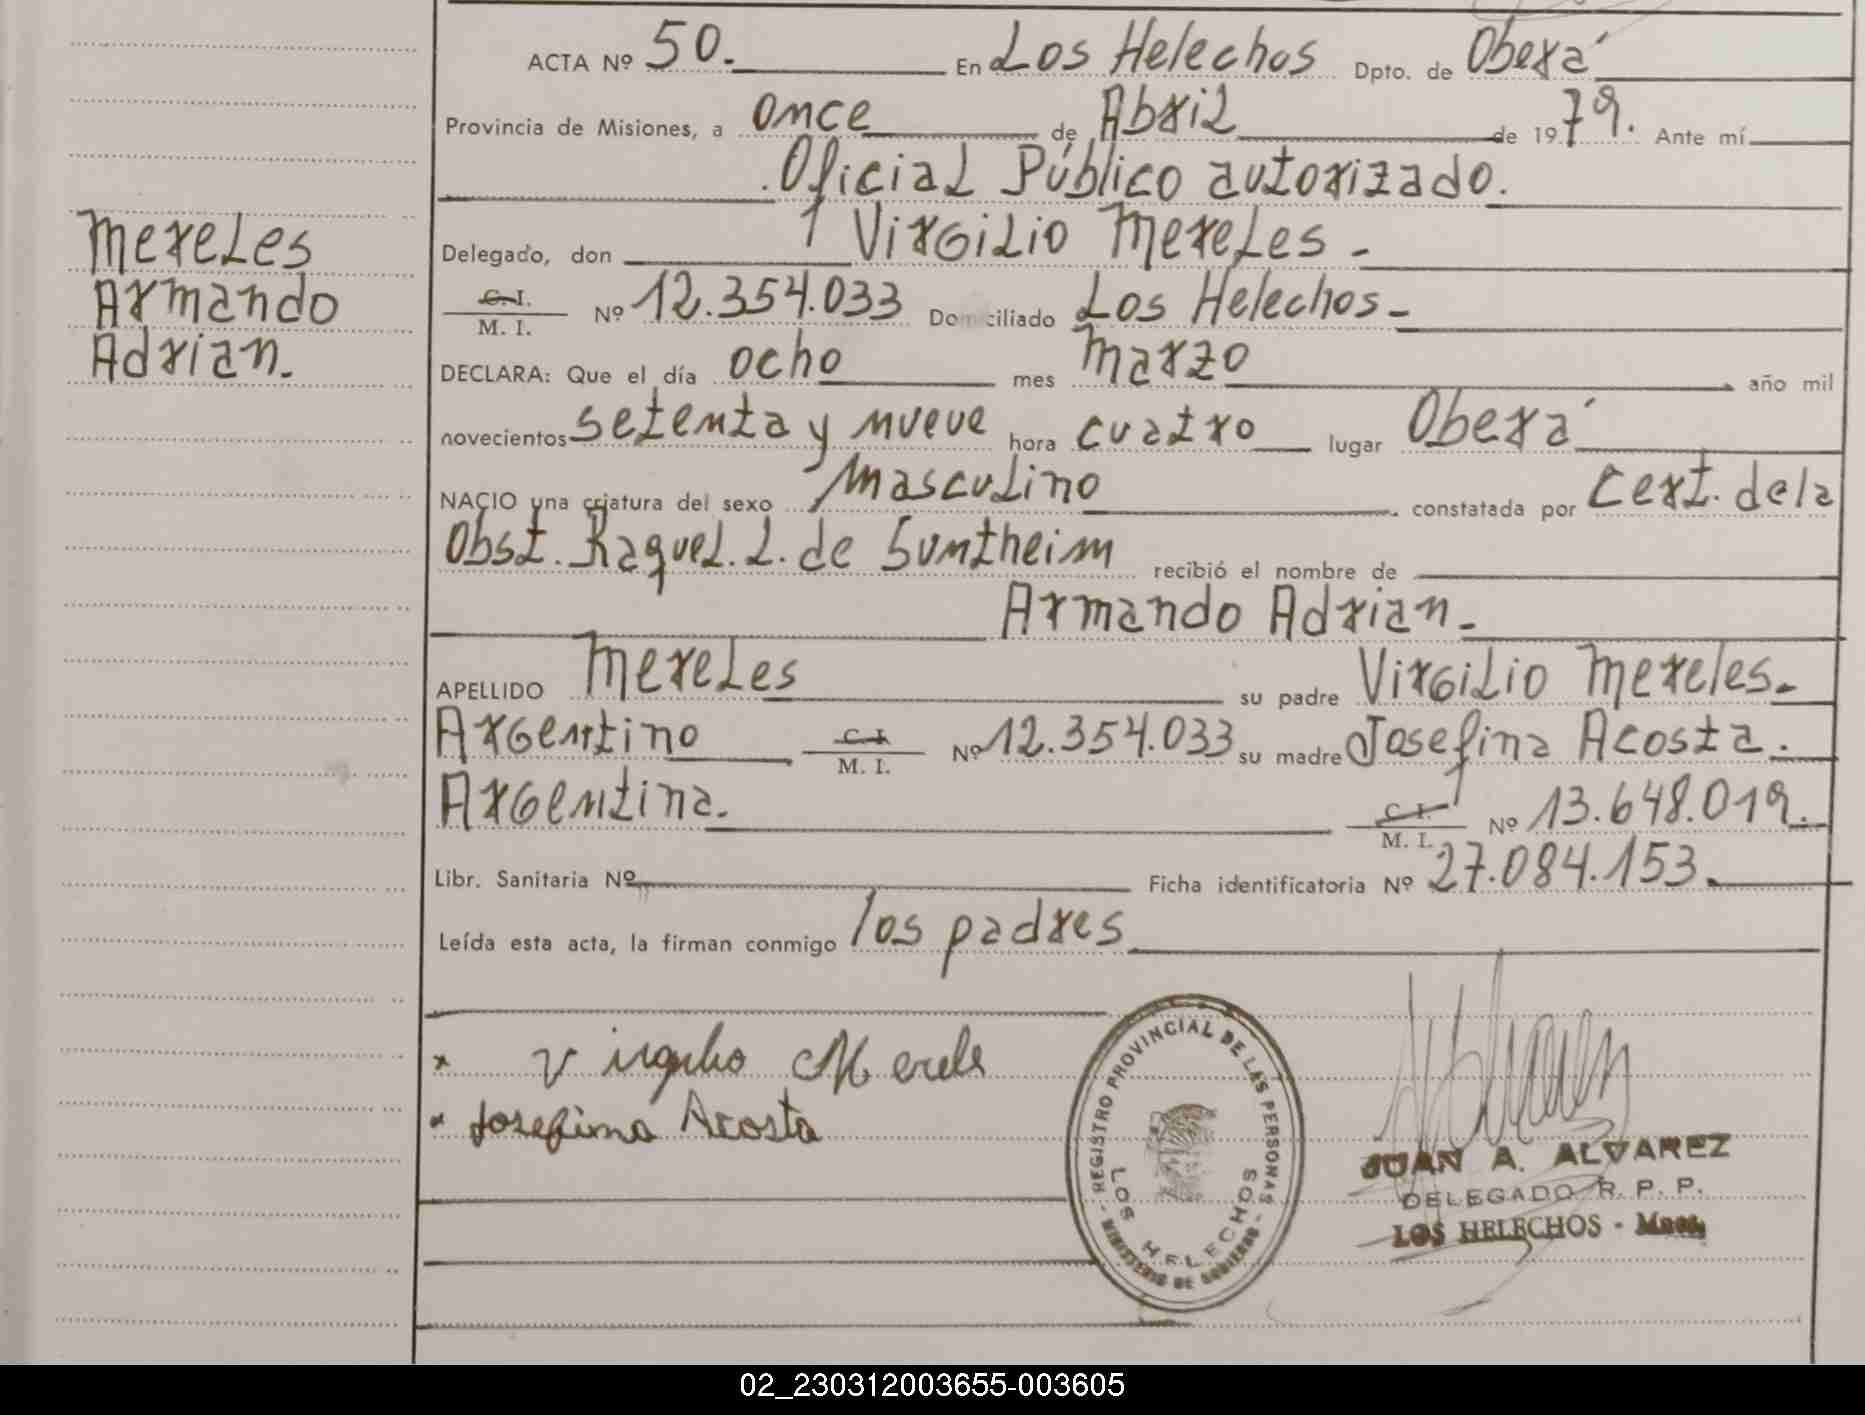 ACTA Nº 50. En Los Helechos Dpto. de Oberá
Provincia de Misiones, a once de Abril de 1979. Ante mí
Oficial Público autorizado.
Delegado, don Virgilio Mereles -
C. I. M. I. Nº 12.354.033 Domiciliado Los Helechos -
DECLARA: Que el día ocho mes Marzo año mil
novecientos setenta y nueve hora cuatro lugar Oberá
NACIO una criatura del sexo Masculino constatada por Cert. de la
Obst. Raquel. L. de Suntheim recibió el nombre de
Armando Adrian. -
APELLIDO Mereles su padre Virgilio Mereles. -
Argentino C. I. M. I. Nº 12.354.033 su madre Josefina Acosta.
Argentina. C. I. M. I. Nº 13.648.019.
Libr. Sanitaria Nº Ficha identificatoria Nº 27.084.153.
Leída esta acta, la firman conmigo los padres
Mereles
Armando
Adrian.
x Virgilio Merele
x Josefina Acosta
REGISTRO PROVINCIAL DE LAS PERSONAS
MINISTERIO DE GOBIERNO
LOS HELECHOS
JUAN A. ALVAREZ
DELEGADO R. P. P.
LOS HELECHOS - Mnes.
02_230312003655-003605